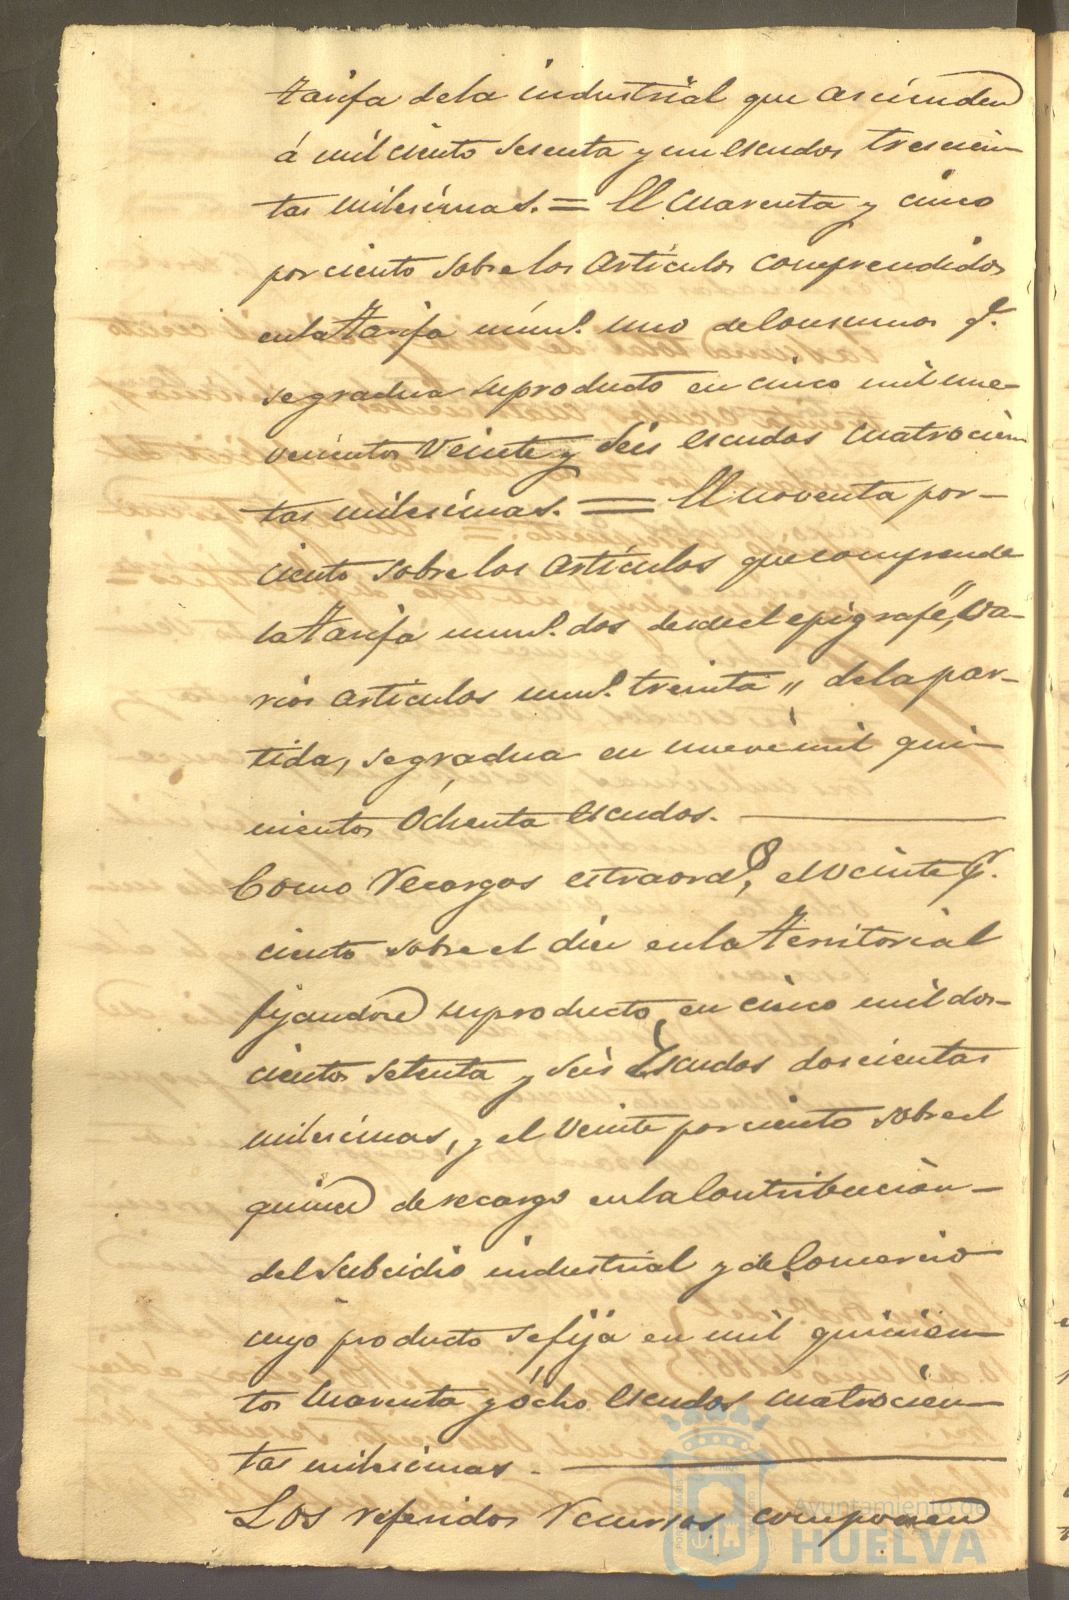 tarifa dela industrial que ascienden
á mil ciento sesenta y un escudos trescien-
tas milesimas. = El cuarenta y cinco
por ciento sobre los articulos comprendidos
en la tarifa núm.º uno de Consumos q.
se gradua su producto en cinco mil nue-
vecientos Veinte y Seis escudos cuatrocien
tas milesimas. = El noventa por-
ciento sobre los artículos que comprende
la tarifa num.º dos desde el epigrafe, "Va-
rios articulos num.º treinta" de la par-
tida, se gradua en nueve mil qui-
nientos Óchenta escudos.
Como Recargos estraord.s, el veinte p.
ciento sobre el diez en la territorial
fijandose su producto, en cinco mil dos-
cientos setenta y seis Escudos doscientas
milesimas, y el veinte por ciento sobre el
quince de recargo en la Contribución-
del Subcidio industrial y de Comercio
cuyo producto se fija en mil quinien-
tos cuarenta y ócho escudos cuatrocien-
tas milesimas.
Los referidos recursos componen
Ayuntamiento de
HUELVA